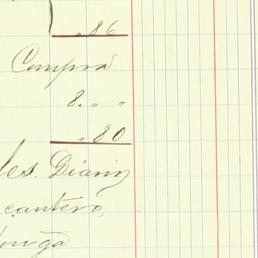 „ 86
Compra
8. „ „
„ 80
les. Diario
cantero,
longa